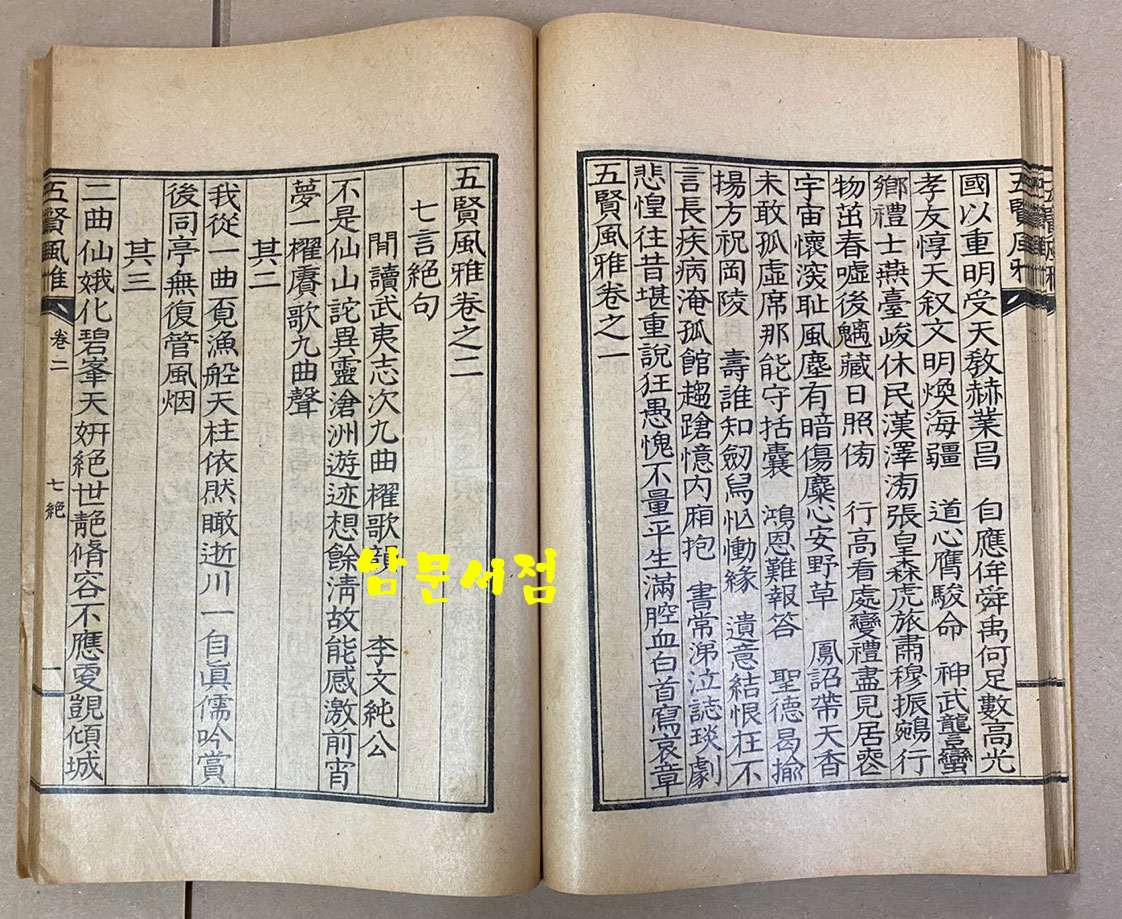 五賢風雅
國以重明受天敎赫業昌　自應侔舜禹何足數高光
孝友惇天叙文明煥海疆　道心膺駿命　神武讋蠻
鄕禮士燕臺峻休民漢澤滂張皇森虎旅肅穆振鵷行
物茁春噓後魑藏日照傍　行高看處變禮盡見居喪
宇宙懷深耻風塵有暗傷麋心安野草　鳳詔帶天香
未敢孤虛席那能守括囊　鴻恩難報答　聖德曷揄
揚方祝岡陵　壽誰知劒舃忙慟緣　遺意結恨枉不
言長疾病淹孤館趨蹌憶內廂抱　書常涕泣誌琰劇
悲惶往昔堪重說狂愚愧不量平生滿腔血白首寫哀章
五賢風雅卷之一
五賢風雅卷之二
七言絶句
閒讀武夷志次九曲櫂歌韻　李文純公
不是仙山詫異靈滄洲遊迹想餘淸故能感激前宵
夢一櫂賡歌九曲聲
其二
我從一曲覓漁船天柱依然瞰逝川一自眞儒吟賞
後同亭無復管風烟
其三
二曲仙娥化碧峯天姸絶世靚脩容不應更覬傾城
五賢風雅
卷二
七絶
一
남문서점